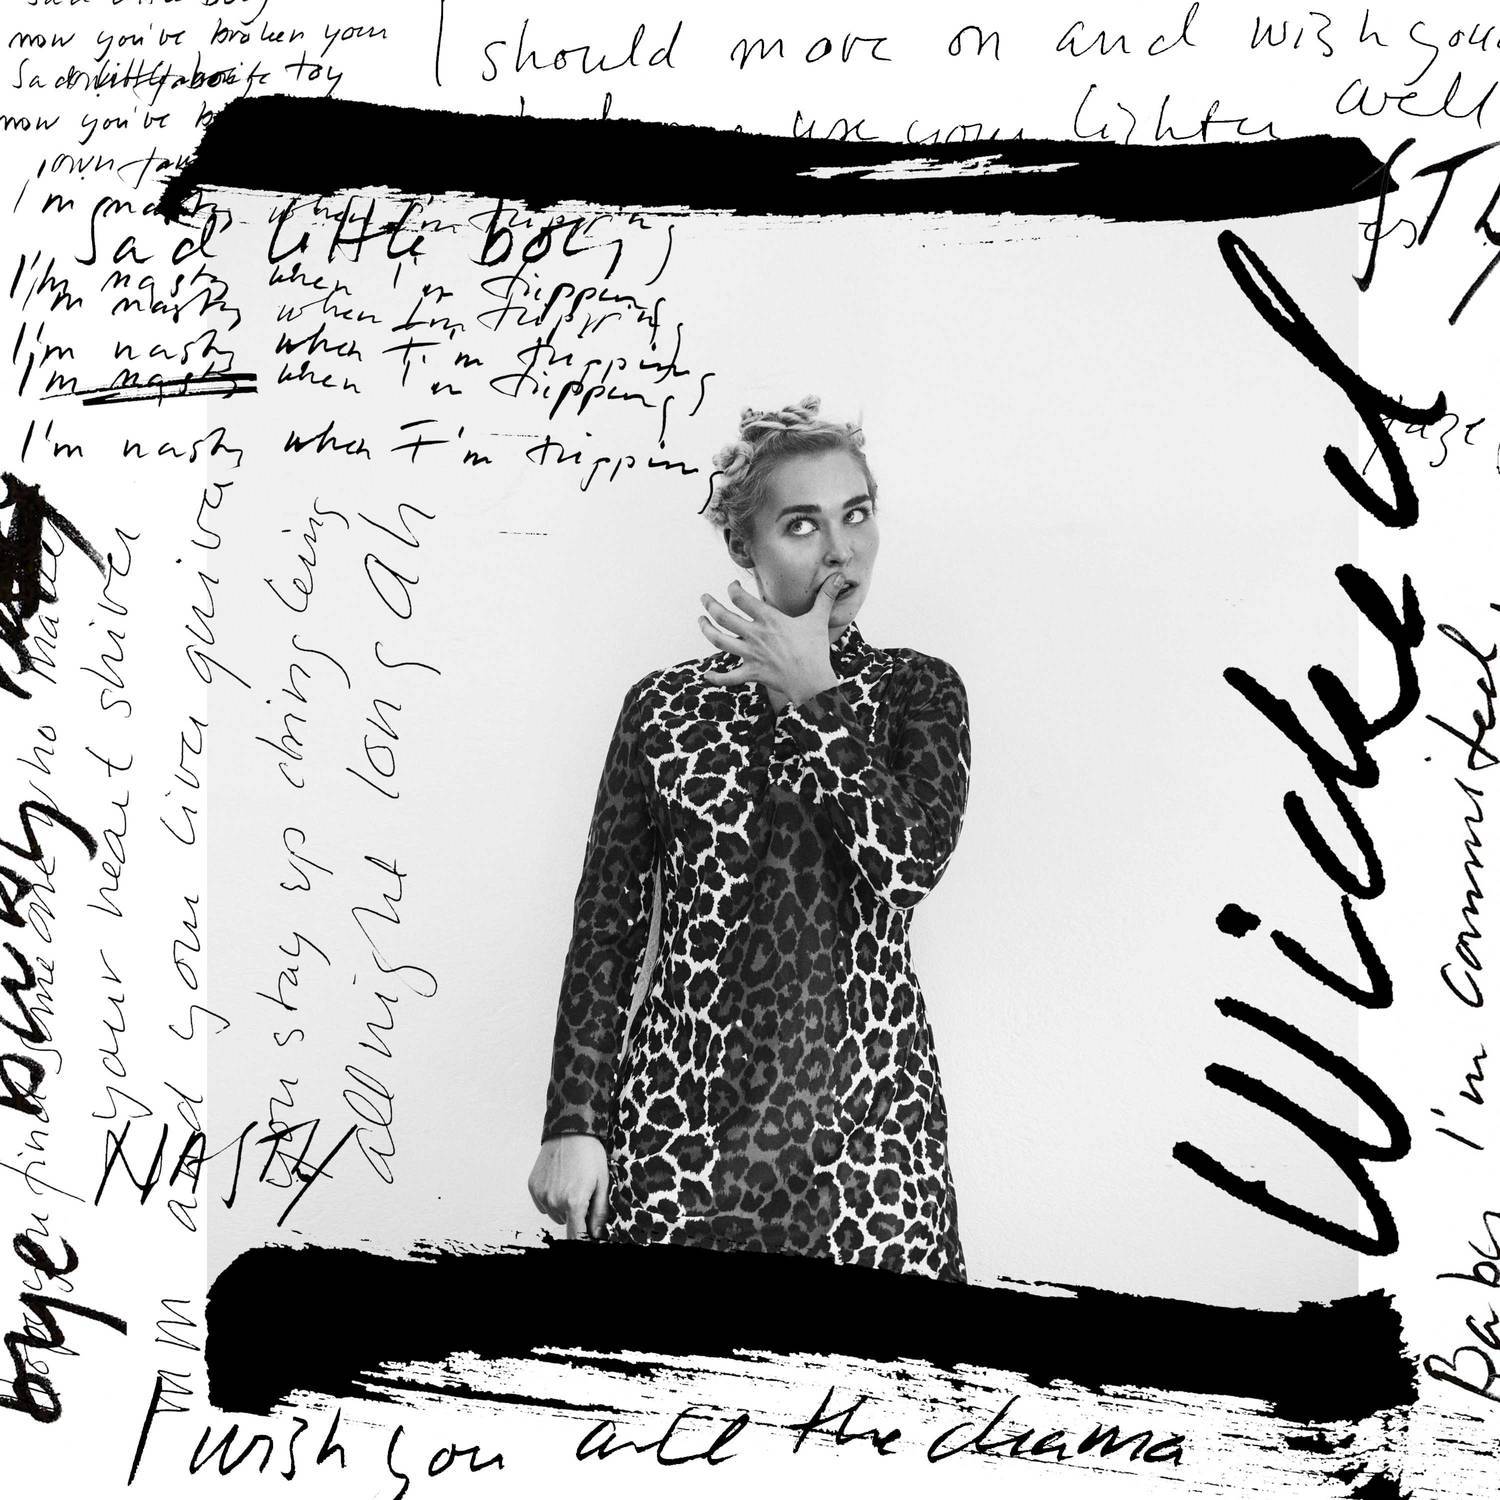 sad little boy
now you've broken your
Sad little toy
now you've
I'm nasty when I'm tripping
Sad little boy
I'm nasty when I'm tripping
I'm nasty when I'm tripping
I'm nasty when I'm tripping
I'm nasty when I'm tripping
I'm nasty when I'm tripping
I should move on and wish you
well
use your lighter
Wicked
Baby I'm commited
bye
you find someone who
your heart shiver
and your liver quiver
mm
you stay up doing
all night long ah
NASTY
I wish you all the drama